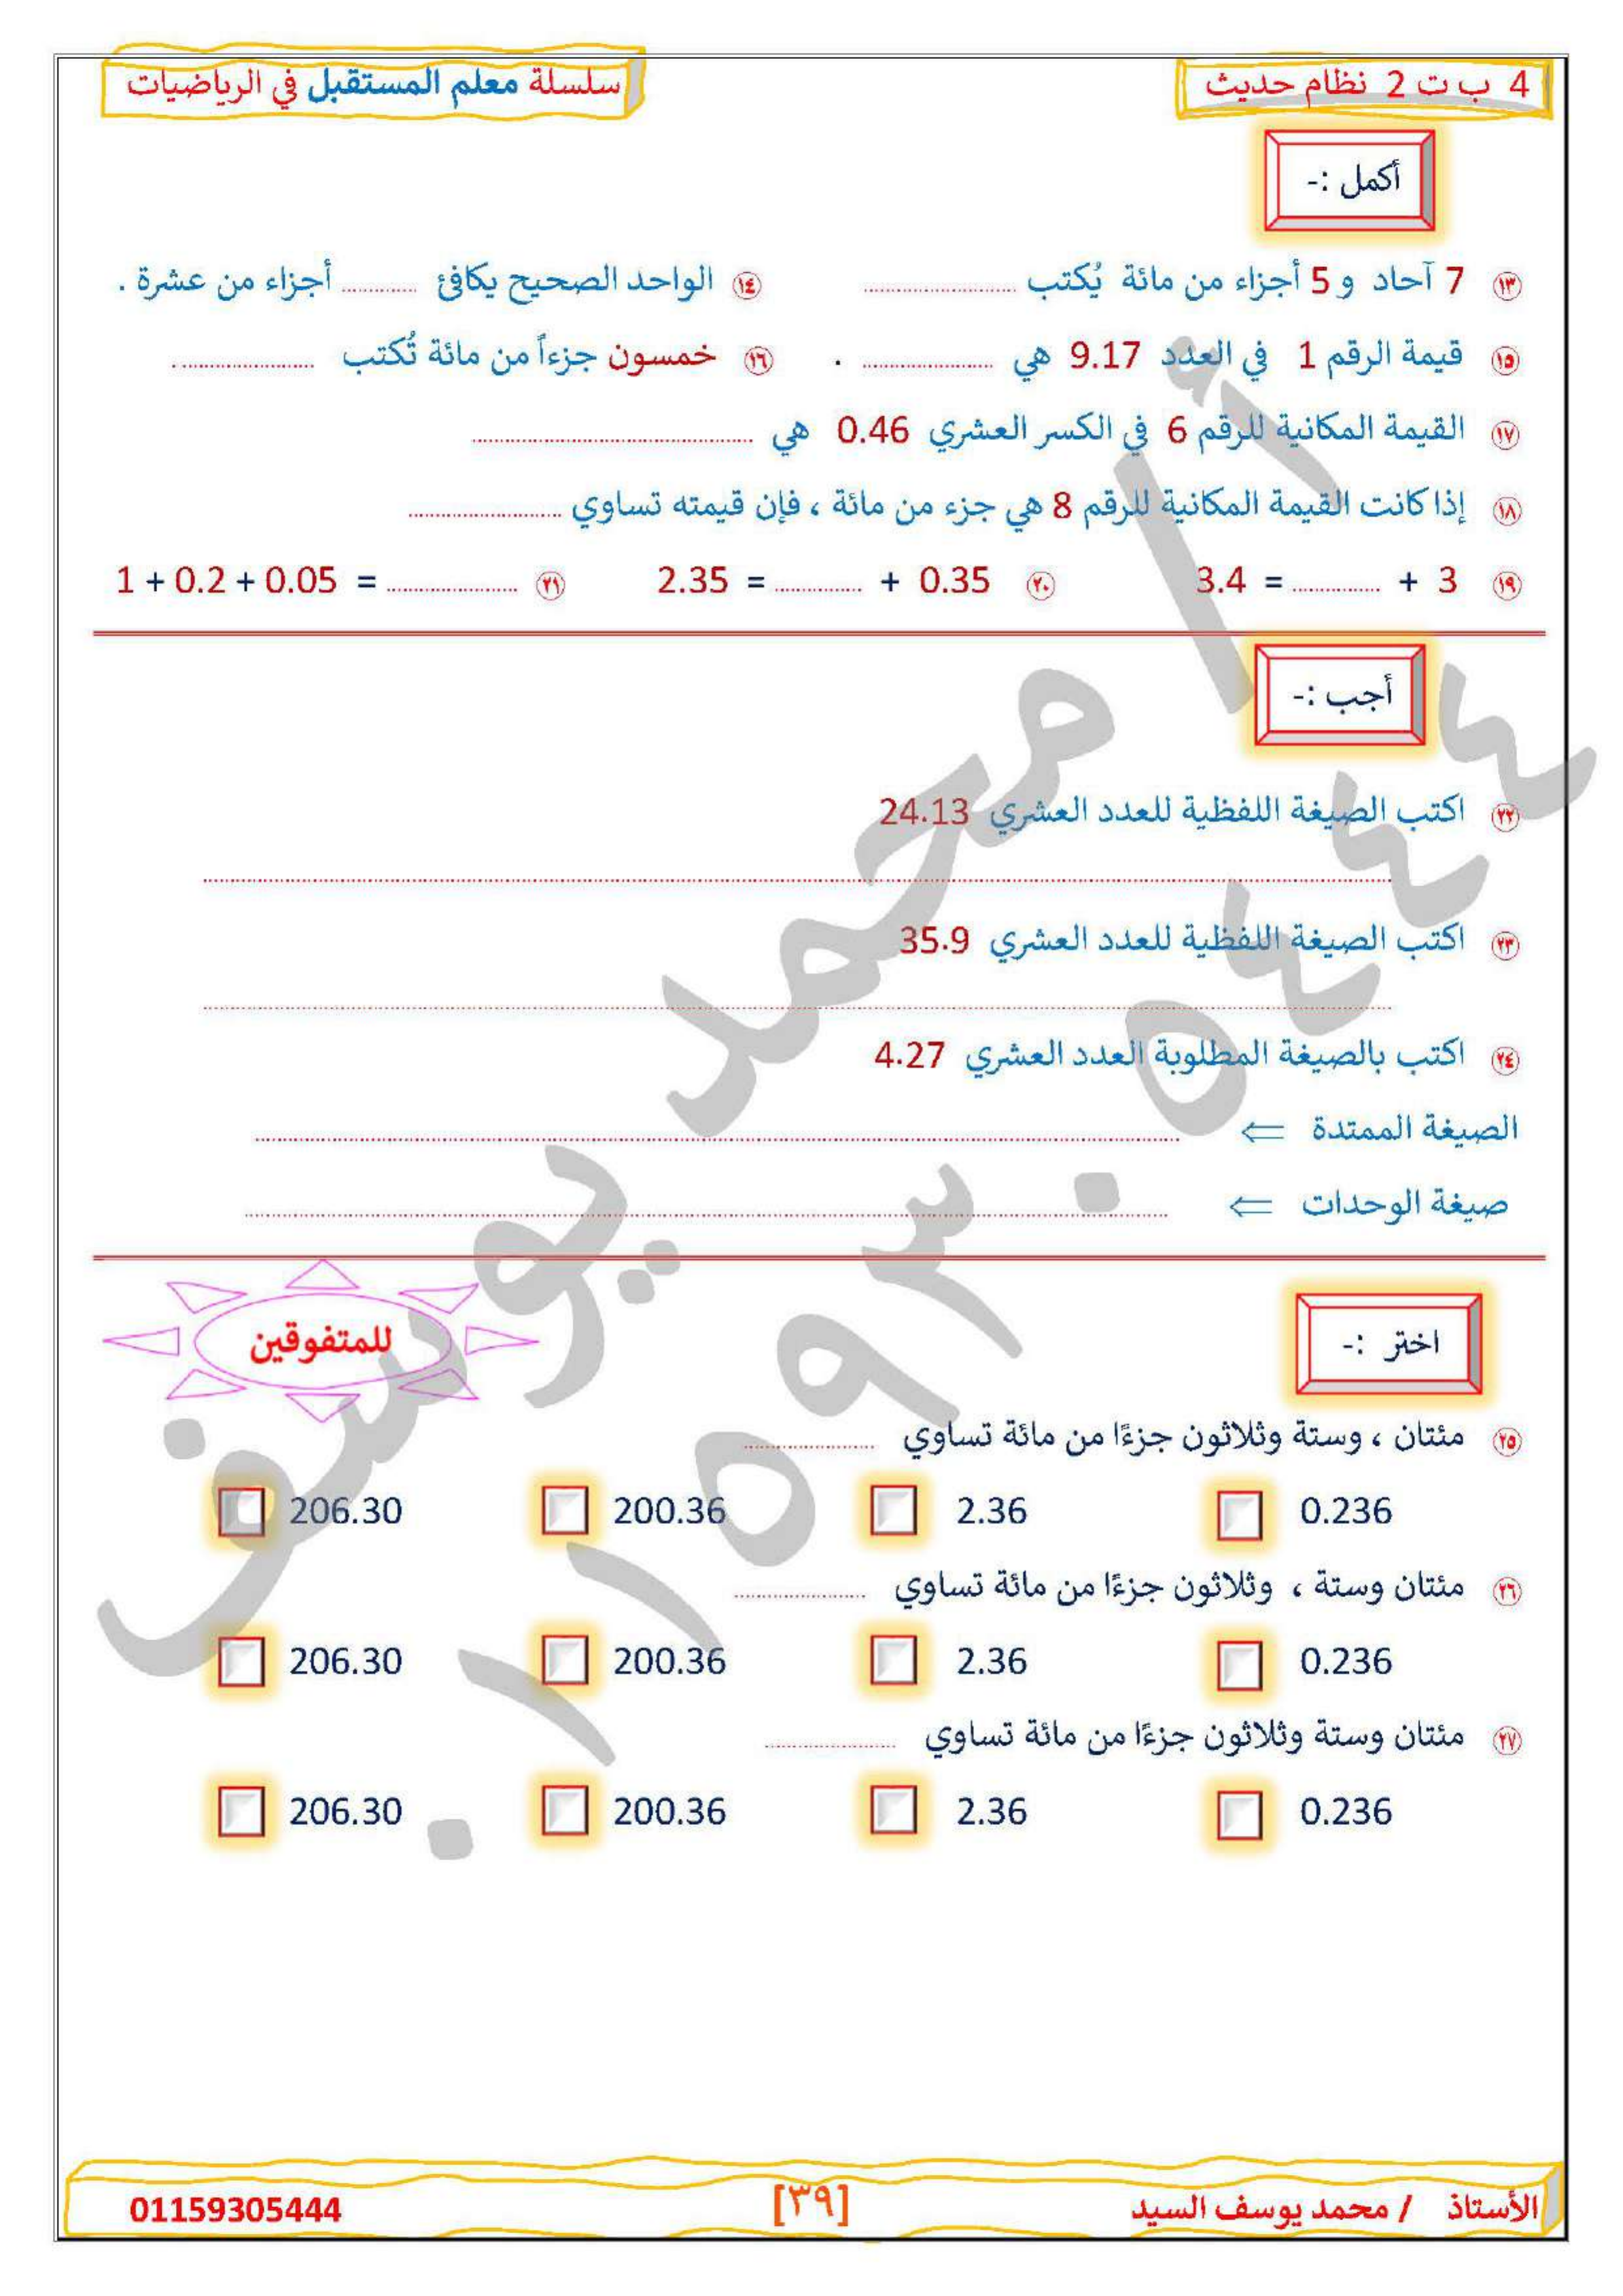 4 ب ت 2 نظام حديث
سلسلة معلم المستقبل في الرياضيات
أكمل :-
١٣ 7 آحاد و 5 أجزاء من مائة يُكتب ..................
١٤ الواحد الصحيح يكافئ ......... أجزاء من عشرة .
١٥ قيمة الرقم 1 في العدد 9.17 هي .................. .
١٦ خمسون جزءاً من مائة تُكتب .................. .
١٧ القيمة المكانية للرقم 6 في الكسر العشري 0.46 هي ..................
١٨ إذا كانت القيمة المكانية للرقم 8 هي جزء من مائة ، فإن قيمته تساوي ..................
١٩ 3.4 = ............ + 3
٢٠ 2.35 = ............ + 0.35
٢١ 1 + 0.2 + 0.05 = ..................
أجب :-
٢٢ اكتب الصيغة اللفظية للعدد العشري 24.13
٢٣ اكتب الصيغة اللفظية للعدد العشري 35.9
٢٤ اكتب بالصيغة المطلوبة العدد العشري 4.27
الصيغة الممتدة ⇐ ..................
صيغة الوحدات ⇐ ..................
اختر :-
للمتفوقين
٢٥ مئتان ، وستة وثلاثون جزءًا من مائة تساوي ..................
0.236 2.36 200.36 206.30
٢٦ مئتان وستة ، وثلاثون جزءًا من مائة تساوي ..................
0.236 2.36 200.36 206.30
٢٧ مئتان وستة وثلاثون جزءًا من مائة تساوي ..................
0.236 2.36 200.36 206.30
أ / محمد يوسف
٠١١٥٩٣٠٥٤٤٤
الأستاذ / محمد يوسف السيد
[٣٩]
01159305444